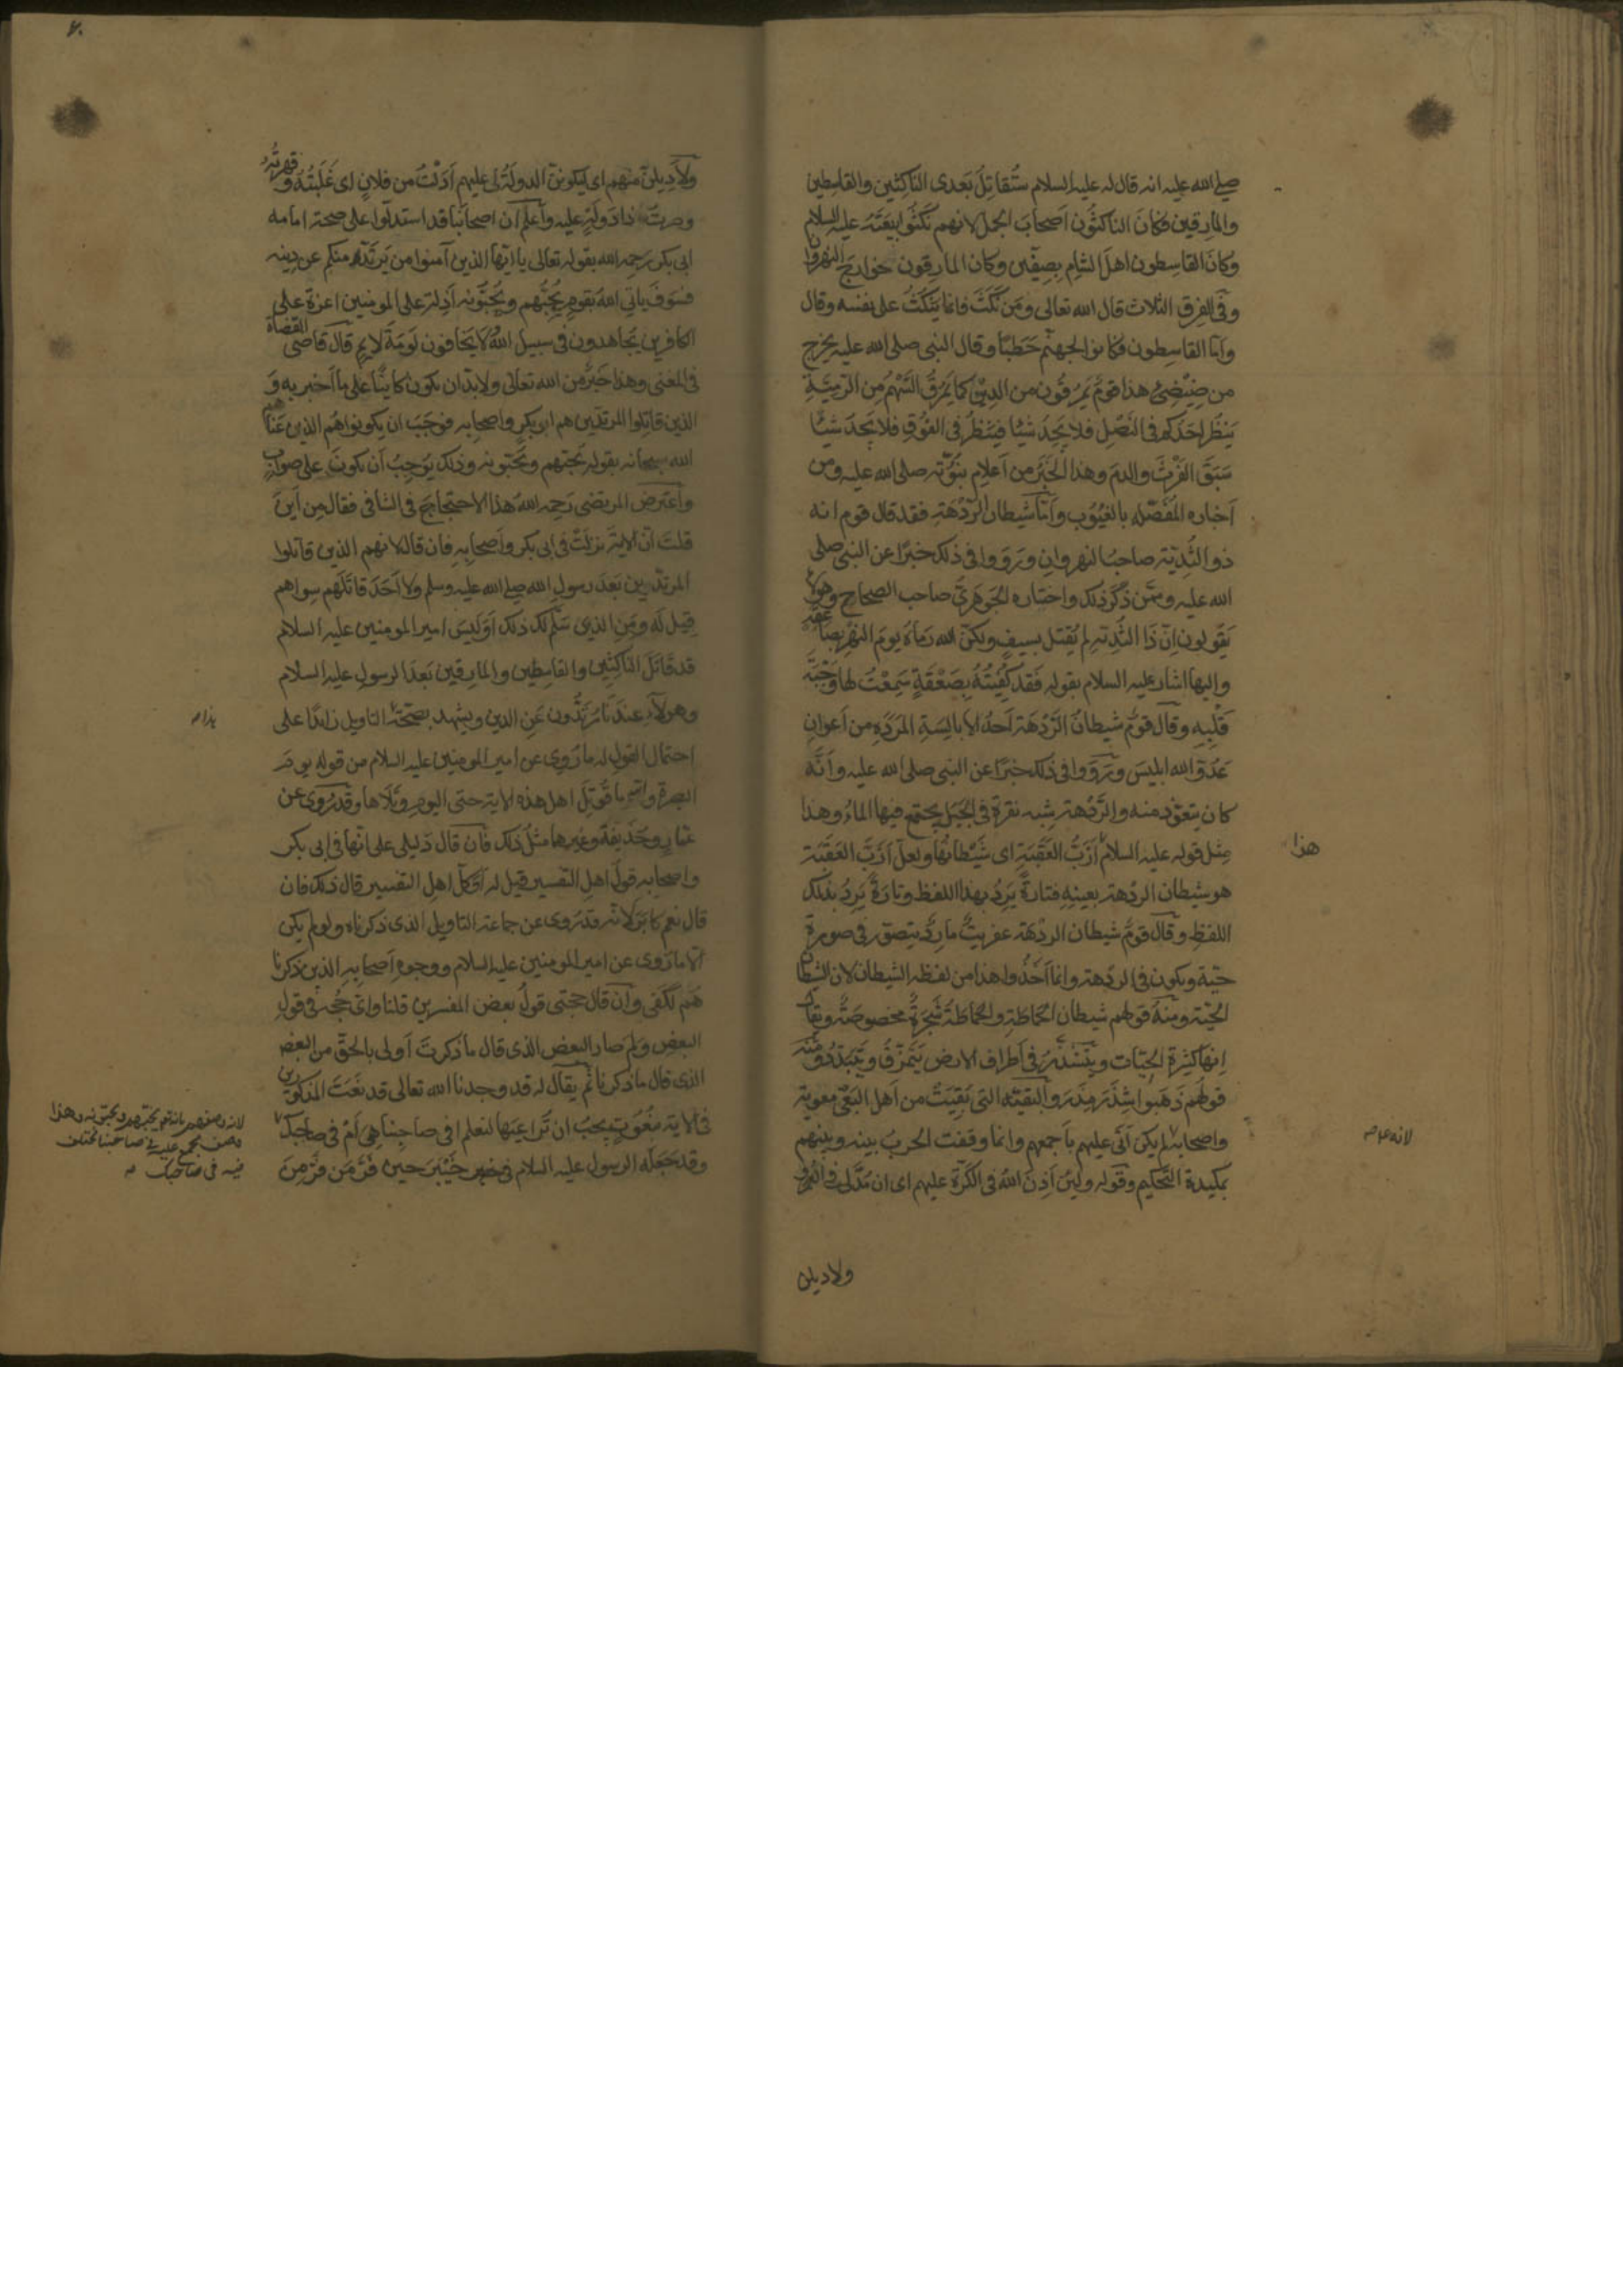 صلى الله عليه انه قال له عليه السلام ستُقاتِلُ بَعدى الناكِثين والقاسِطين
والمارقين فكانَ الناكثُون اَصحابَ الجمل لانهم نَكَثُوا بَيعَتَهُ عليه السلام
وكانَ القاسِطون اهلَ الشامِ بِصِفّين وكان المارِقون خوارج النهروان
وفى الفِرق الثلاث قال الله تعالى ومَن نَكَثَ فانما يَنكُثُ على نفسه وقال
وامّا القاسِطون فكانوا لجهنّم حَطَبًا وقال النبى صلى الله عليه يخرج
من ضِئضِئ هذا قومٌ يَمرُقُون من الدِين كما يَمرُقُ السَّهمُ مِن الرّمِيَّةِ
يَنظُر اَحَدُكم فى النَصْلِ فلا يَجِدُ شيئًا فيَنظُر فى الفُوْقِ فلا يَجِدُ شيئًا
سَبَقَ الفَرْثَ والدمَ وهذا الخَبَرُ من اَعلامِ نبُوّته صلى الله عليه ومن
اَخباره المُفَصَّلة بالغيُوب وامّا شيطان الرَّدْهَةِ فقد قال قوم انه
ذو الثُديّة صاحبُ النهروان ورَوَوا فى ذلك خبرًا عن النبى صلى
الله عليه وممّن ذكَر ذلك واختاره الجَوهَرىّ صاحب الصحاح وهولاء
يَقُولون اِنّ ذَا الثُدَيّة لم يُقتل بسيفٍ ولكنّ الله رَماهُ يومَ النهرِ بصاعقة
واليها اشار عليه السلام بقوله فَقد كُفِيْتُهُ بِصَعْقَةٍ سَمِعْتُ لها وَجْبَةَ
قَلْبِهِ وقال قومٌ شيطانُ الرَّدْهَة اَحدُ الاَبالِسَةِ المَرَدَةِ من اَعوانِ
عَدُوّ الله ابليسَ ورَوَوا فى ذلك خبرًا عن النبى صلى الله عليه وَانَّهُ
كان يتعوّذ منه والرَّدْهة شِبه نقرة فى الجَبَل يجتمع فيها الماءُ وهذا
مِثل قوله عليه السلام اَزَبُّ العَقَبَةِ اى شَيْطانُها ولعلّ اَزَبَّ العَقَبَة
هو شيطان الردهة بعينِهِ فتارةً يَرِدُ بهذا اللفظ وتارةً يَرِدُ بذلك
اللفظِ وقال قومٌ شيطان الردْهة عفريتٌ مارِدٌ يتصوّر فى صورة
حيّة ويكون فى الردهة وانما اَخَذُوا هذا من لفظه الشيطان لان الشيطان
الحَيّة ومنه قولهم شيطان الحَماطَةِ والحَماطَةُ شَجَرَةٌ مخصوصَةٌ ويقال
اِنها كثيرة الحيّات ويَتَشَذَّرُ فى اَطراف الارض يَتَمَزَّقُ ويَتَبَدَّدُ ومنه
قولُهُم ذَهَبُوا شَذَرَ مَذَرَ والبقيّة التى بَقِيَتْ من اَهل البَغى معوية
واصحابه لم يكن اَتى عليهم باَجمعهم وانما وقفت الحربُ بينه وبينهم
بمكيدة التَّحكيم وقوله ولئن اَذِنَ اللهُ فى الكَرّة عليهم اى ان مُدَّ لى فى العُمر
ولاديلن
هذا
لانه
ولاَُدِيلنّ منهم اى ليكوننّ الدولَةُ لى عليهم اَدَلْتُ من فلانٍ اى غَلَبْتُهُ وقهرتُه
وصِرتُ ذا دَولَةٍ عليه واعلم ان اصحابَنا قد استدلّوا على صحة امامه
ابى بكر رحمه الله بقوله تعالى يا ايها الذين آمنوا من يَرتَدّ منكم عن دِينه
فسَوفَ ياتى اللهُ بقومٍ يُحِبُّهم ويُحِبُّونه اَذِلة على المومنين اعزة على
الكافرين يُجاهدون فى سبيل اللهِ لا يَخافون لَومَةَ لائم قال قاضى القضاة
فى المغنى وهذا خَبَرٌ من الله تعالى ولا بدّ ان يكون كاينًا على ما اَخبر به وَ
الذين قاتلوا المرتدّين هم ابو بكرٍ واصحابه فوجَبَ ان يكونوا هُم الذين عَناهم
الله سبحانه بقوله يحبّهم ويحبّونه وذلك يُوجِبُ اَن يكونَ على صوابٍ
واعترض المرتضى رَحِمه اللهُ هذا الاحتجاجَ فى الشافى فقال مِن اَينَ
قلتَ انّ الاية نزلَتْ فى ابى بكر واَصحابِهِ فان قال لانهم الذين قاتلوا
المرتدّين بَعدَ رسولِ الله صلى الله عليه وسلم ولا اَحَدَ قاتَلَهم سِواهم
قِيل لَه ومَنِ الذى سَلّم لك ذلك اَوَلَيسَ امير المومنين عليه السلام
قد قاتَلَ الناكِثين والقاسِطين والمارقين بَعدَ الرسولِ عليه السلام
وهولاءِ عندَنا مُرتَدُّون عَنِ الدين ويشهد بصحّة التاويل زائدًا على
احتمال القول له ما رُوِى عن امير المومنين عليه السلام من قوله يومَ
البصرة والله ما قُوتِلَ اهل هذه الاية حتى اليومِ وتَلاها وقد رُوِىَ عن
عمّارٍ وحُذَيفةَ وغيرهما مثلُ ذلك فان قال دَليلى على انّها فى ابى بكر
واصحابه قولُ اهل التفسير قيل له اَوَكلّ اهلِ التفسير قال ذلك فان
قال نعم كابَرَ لانّه قد رُوِى عن جماعة التاويل الذى ذكرناه ولو لم يكن
الّا ما رُوِى عن امير المومنين عليه السلام ووجوهِ اَصحابِهِ الذين ذكرنا
هُم لَكَفى وان قال حجّتى قولُ بعض المفسرين قلنا واىُّ حُجّة فى قولِ
البعضِ ولِمَ صار البعض الذى قال ما ذكرتَ اَولى بالحقّ من البعض
الذى قال ما ذكرنا ثم يقال له قد وجدنا الله تعالى قد نَعَتَ المذكورين
فى الاية بنُعُوتٍ يجبُ ان نُراعِيَها لنعلم افى صاحِبنا هى اَمْ فى صاحبك
وقد جَعَله الرسول عليه السلام فى خَيْبَرَ حين فَرَّ مَن فَرَّ مِنَ
لانه وصفهم بانه يحبهم ويحبونه وهذا
وصف مجمع عليه فى صاحبنا مختلف
فيه فى صاحبك